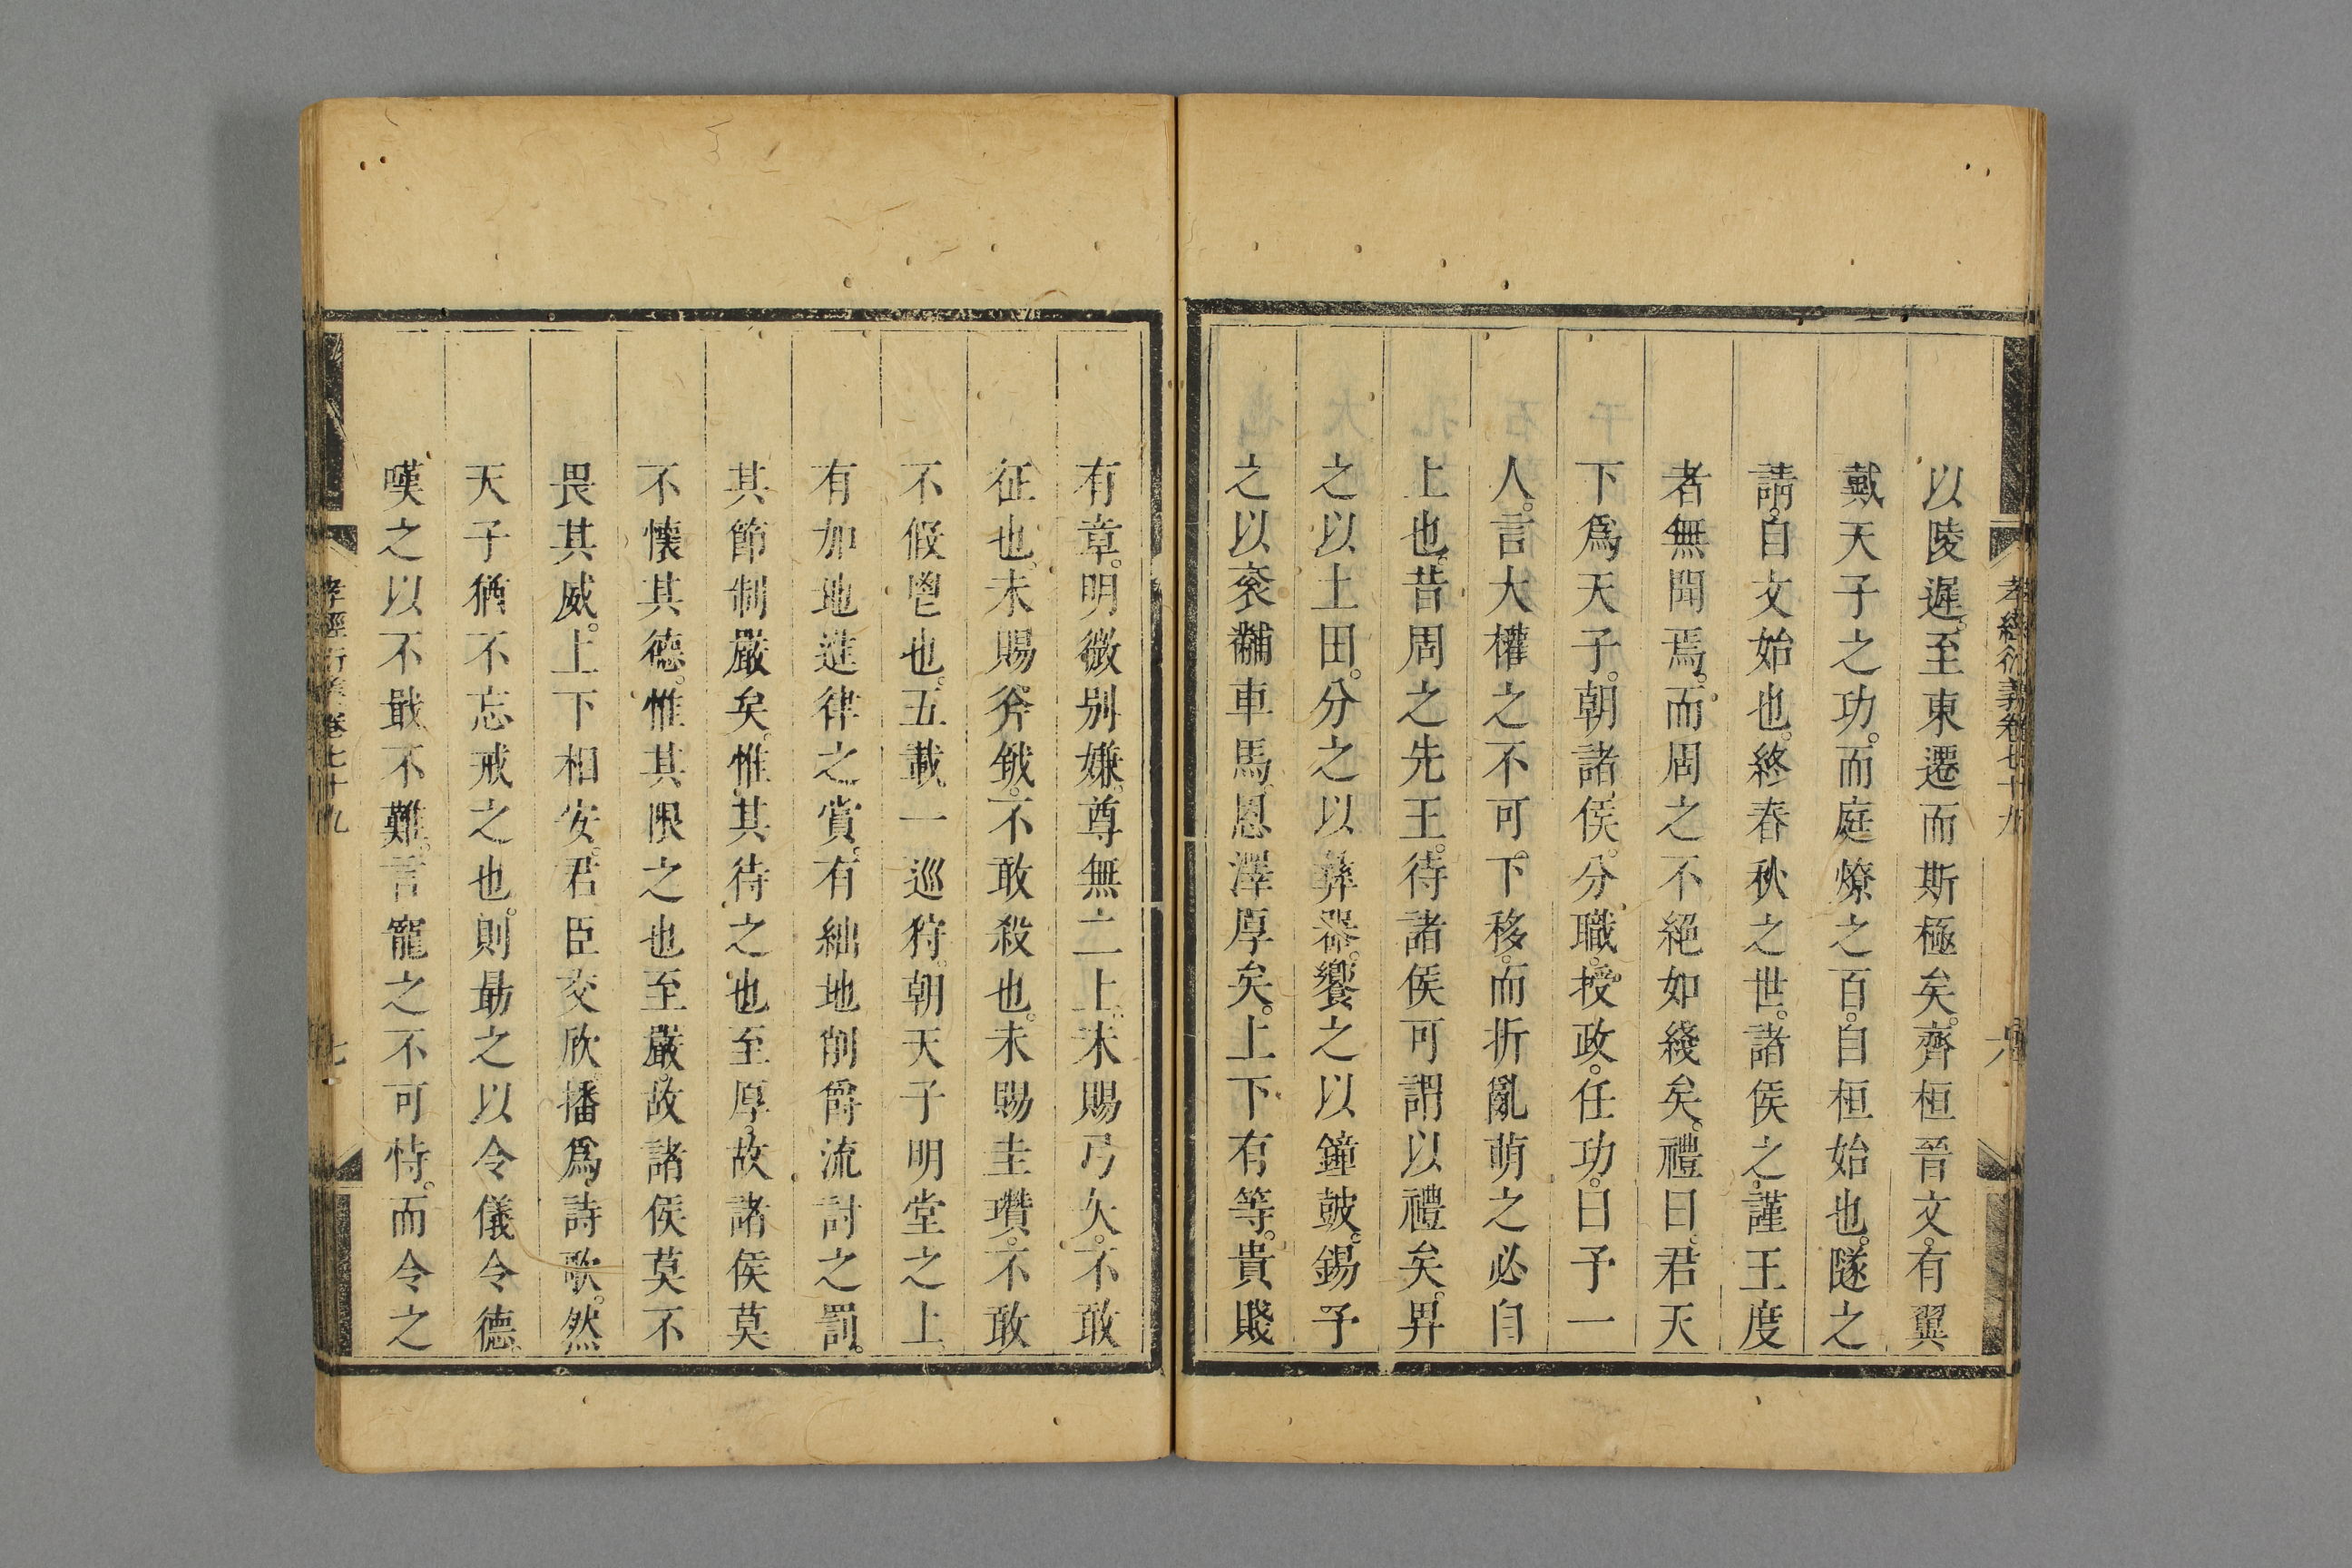 孝經衍義卷七十九
六
以陵遲。至東遷而斯極矣。齊桓晉文。有翼
戴天子之功。而庭燎之百。自桓始也。隧之
請。自文始也。終春秋之世。諸侯之謹王度
者無聞焉。而周之不絕如綫矣。禮曰。君天
下爲天子。朝諸侯。分職。授政。任功。曰予一
人。言大權之不可。下移。而折亂萌之必自
上也。昔周之先王。待諸侯可謂以禮矣。畀
之以土田。分之以彝器。饗之以鐘鼓。錫予
之以袞黼車馬。恩澤厚矣。上下有等。貴賤
有章。明微别嫌。尊無二上。未賜弓矢。不敢
征也。未賜斧鉞。不敢殺也。未賜圭瓚。不敢
不假鬯也。五載一巡狩。朝天子明堂之上。
有加地進律之賞。有絀地削爵流討之罰。
其節制嚴矣。惟其待之也至厚。故諸侯莫
不懷其德。惟其限之也至嚴。故諸侯莫不
畏其威。上下相安。君臣交欣。播爲詩歌。然
天子猶不忘戒之也。則勗之以令儀令德。
嘆之以不戢不難。言寵之不可恃。而令之
孝經衍義卷七十九
七